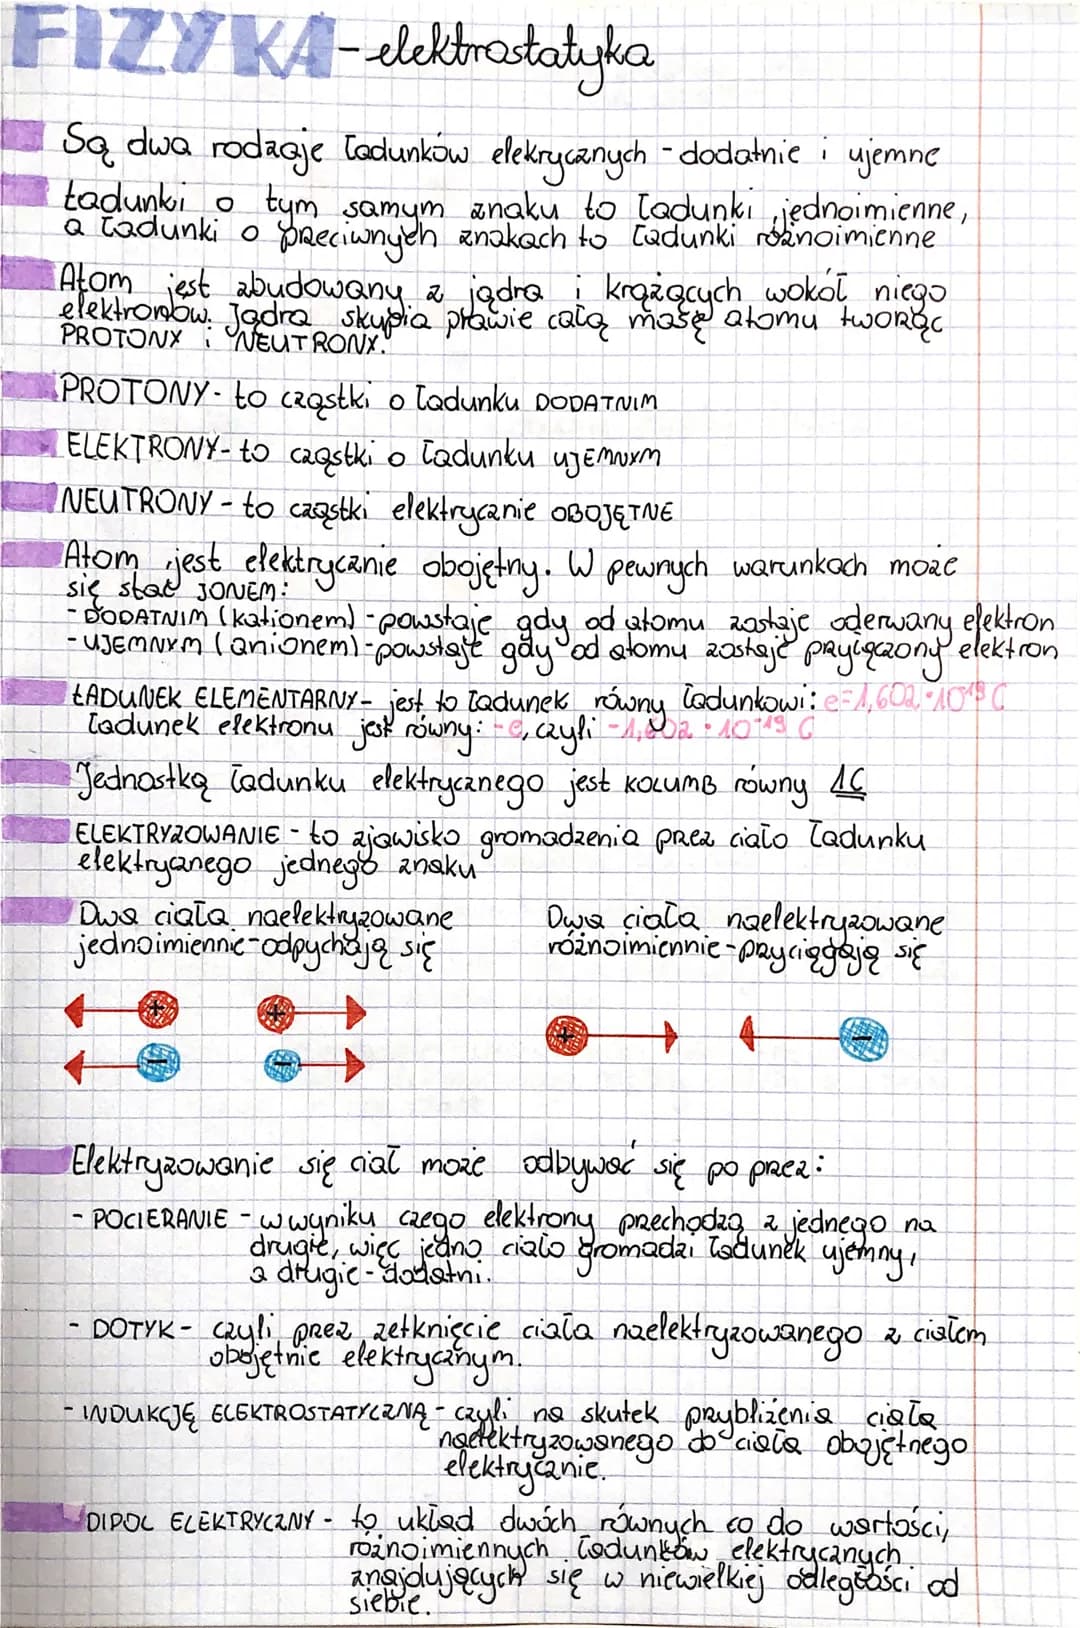 FIZYKA - elektrostatyka
Są dwa rodzaje ładunków elekrycznych - dodatnie i ujemne
Ładunki o tym samym znaku to ładunki jednoimienne,
a ładunki o przeciwnych znakach to ładunki różnoimienne
Atom jest zbudowany z jądra i krążących wokół niego
elektronów. Jądra skupia prawie całą masę atomu tworząc
PROTONY i NEUTRONY.
PROTONY - to cząstki o ładunku DODATNIM
ELEKTRONY - to cząstki o ładunku UJEMNYM
NEUTRONY - to cząstki elektrycznie OBOJĘTNE
Atom jest elektrycznie obojętny. W pewnych warunkach może
się stać JONEM:
- DODATNIM (kationem) - powstaje gdy od atomu zostaje oderwany elektron
- UJEMNYM (anionem) - powstaje gdy od atomu zostaje przyłączony elektron
ŁADUNEK ELEMENTARNY - jest to ładunek równy ładunkowi: e=1,602·10¹⁹ C
ładunek elektronu jest równy: -e, czyli -1,602·10⁻¹⁹ C
Jednostką ładunku elektrycznego jest KULUMB równy 1C
ELEKTRYZOWANIE - to zjawisko gromadzenia przez ciało ładunku
elektrycznego jednego znaku
Dwa ciała naelektryzowane
jednoimiennie - odpychają się
Dwa ciała naelektryzowane
różnoimiennie - przyciągają się
+ +
- -
+ -
Elektryzowanie się ciał może odbywać się po przez:
- POCIERANIE - w wyniku czego elektrony przechodzą z jednego na
drugie, więc jedno ciało gromadzi ładunek ujemny,
a drugie - dodatni.
- DOTYK - czyli przez zetknięcie ciała naelektryzowanego z ciałem
obojętnie elektrycznym.
- INDUKCJĘ ELEKTROSTATYCZNĄ - czyli na skutek przybliżenia ciała
naelektryzowanego do ciała obojętnego
elektrycznie.
DIPOL ELEKTRYCZNY - to układ dwóch równych co do wartości,
różnoimiennych ładunków elektrycznych
znajdujących się w niewielkiej odległości od
siebie.